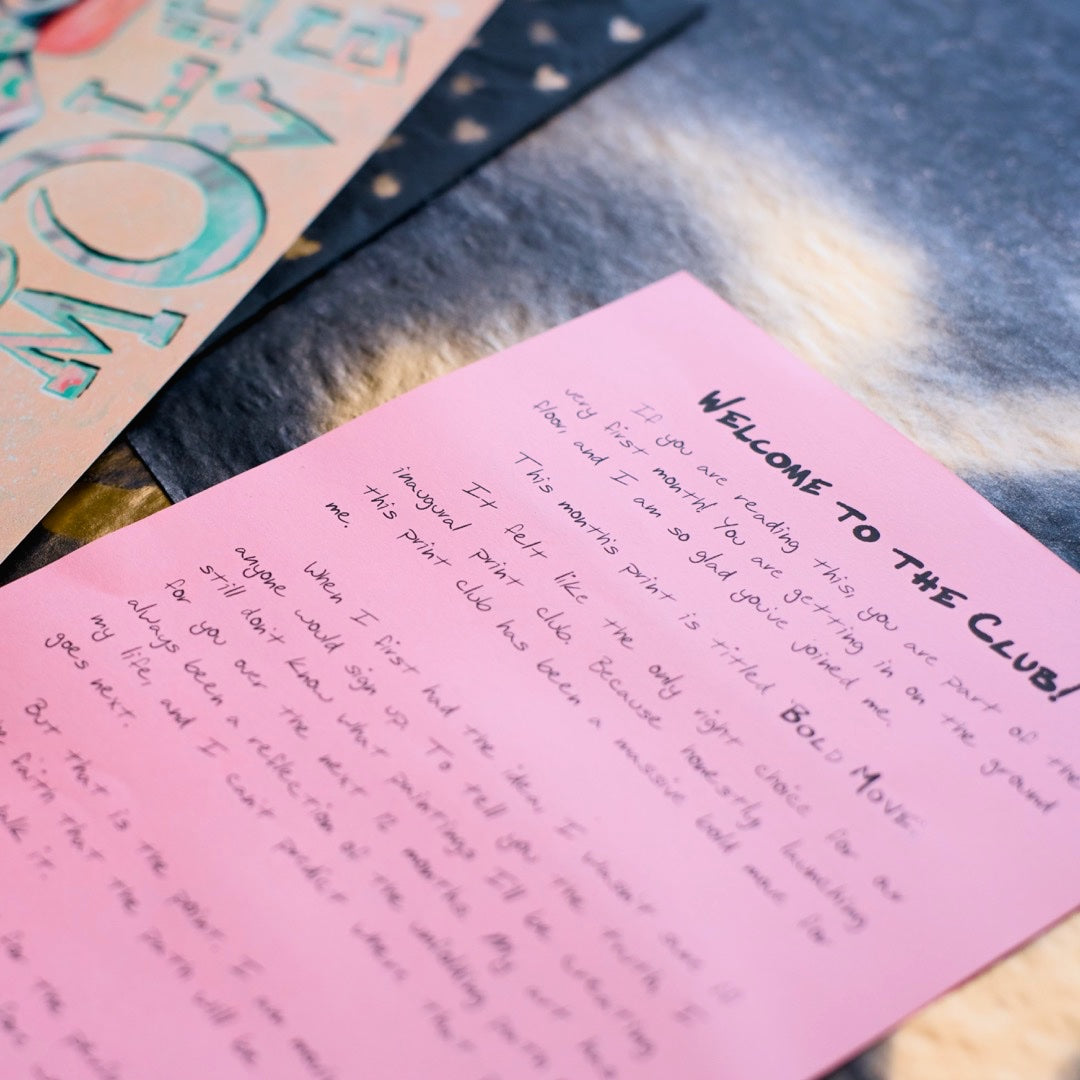 MOVE
WELCOME TO THE CLUB!
If you are reading this, you are part of the
very first month! You are getting in on the ground
floor, and I am so glad you've joined me.
This months print is titled BOLD MOVE.
It felt like the only right choice for our
inaugural print club. Because honestly launching
this print club has been a massive bold move for
me.
When I first had the idea, I wasn't sure if
anyone would sign up. To tell you the truth, I
still don't know what paintings I'll be creating
for you over the next 12 months. My art has
always been a reflection of the winding path
my life, and I can't predict where that
goes next.
But that is the point. I
faith that the path will be
walk it.
for the